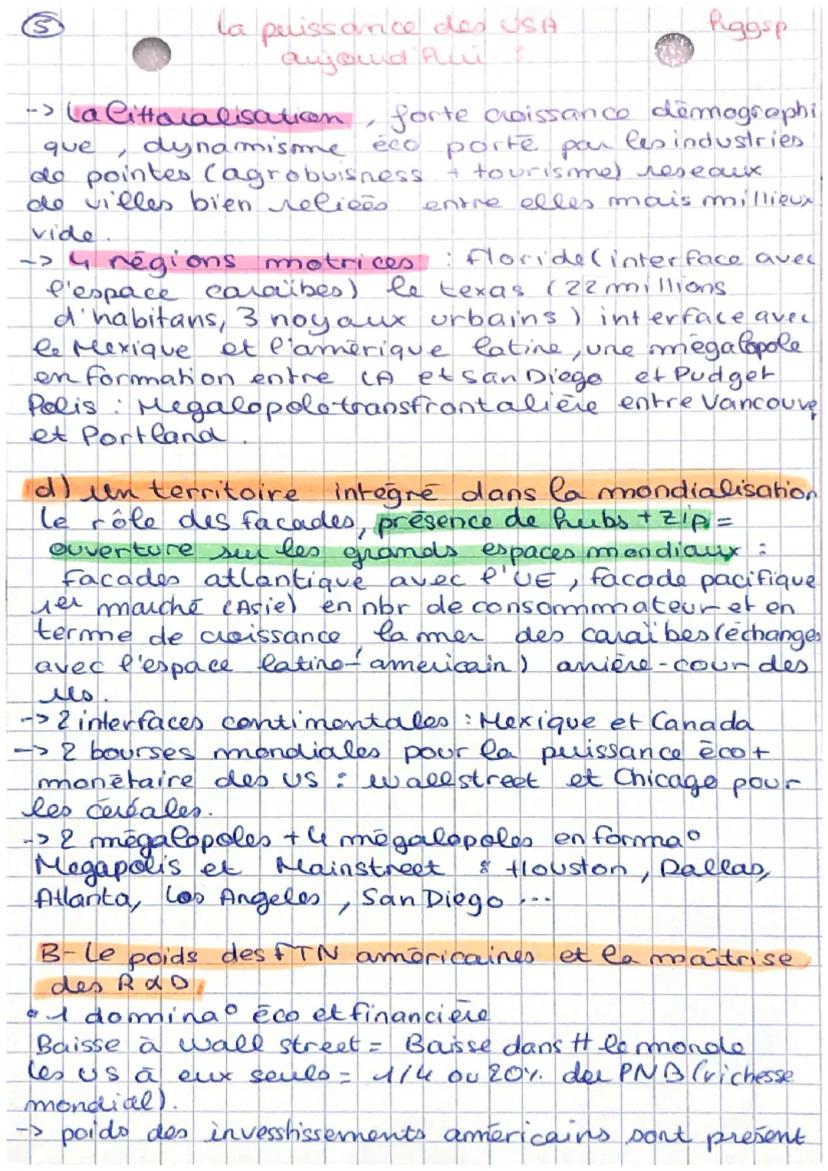 5
La puissance des USA
aujourd'hui :
Hggsp
-> La littoralisation, forte croissance démographi
que, dynamisme éco porté par les industries
de pointes (agrobuisness + tourisme) reseaux
de villes bien reliées entre elles mais millieux
vide.
-> 4 régions motrices : floride (interface avec
l'espace caraïbes) le texas (22 millions
d'habitans, 3 noyaux urbains) interface avec
le Mexique et l'amérique latine, une mégalopole
en formation entre LA et San Diego et Pudget
Polis : Megalopole transfrontalière entre Vancouve
et Portland.
d) un territoire intégré dans la mondialisation
le rôle des facades, présence de hubs + zip =
ouverture sur les grands espaces mondiaux :
facades atlantique avec l'UE, facade pacifique
1er marché (Asie) en nbr de consommmateur et en
terme de croissance, la mer des caraïbes (échanges
avec l'espace latino-américain) arrière-cour des
us.
-> 2 interfaces continentales : Mexique et Canada
-> 2 bourses mondiales pour la puissance éco +
monétaire des US : wallstreet et Chicago pour
les céréales.
-> 2 mégalopoles + 4 mégalopoles en forma°
Megapolis et Mainstreet & Houston, Dallas,
Atlanta, Los Angeles, San Diego ...
B- Le poids des FTN américaines et la maîtrise
des R&D.
• 1 domina° éco et financière
Baisse à wall street = Baisse dans tt le monde
les US à eux seuls = 1/4 ou 20% du PNB (richesse
mondial).
-> poids des invesstissements américains sont présent